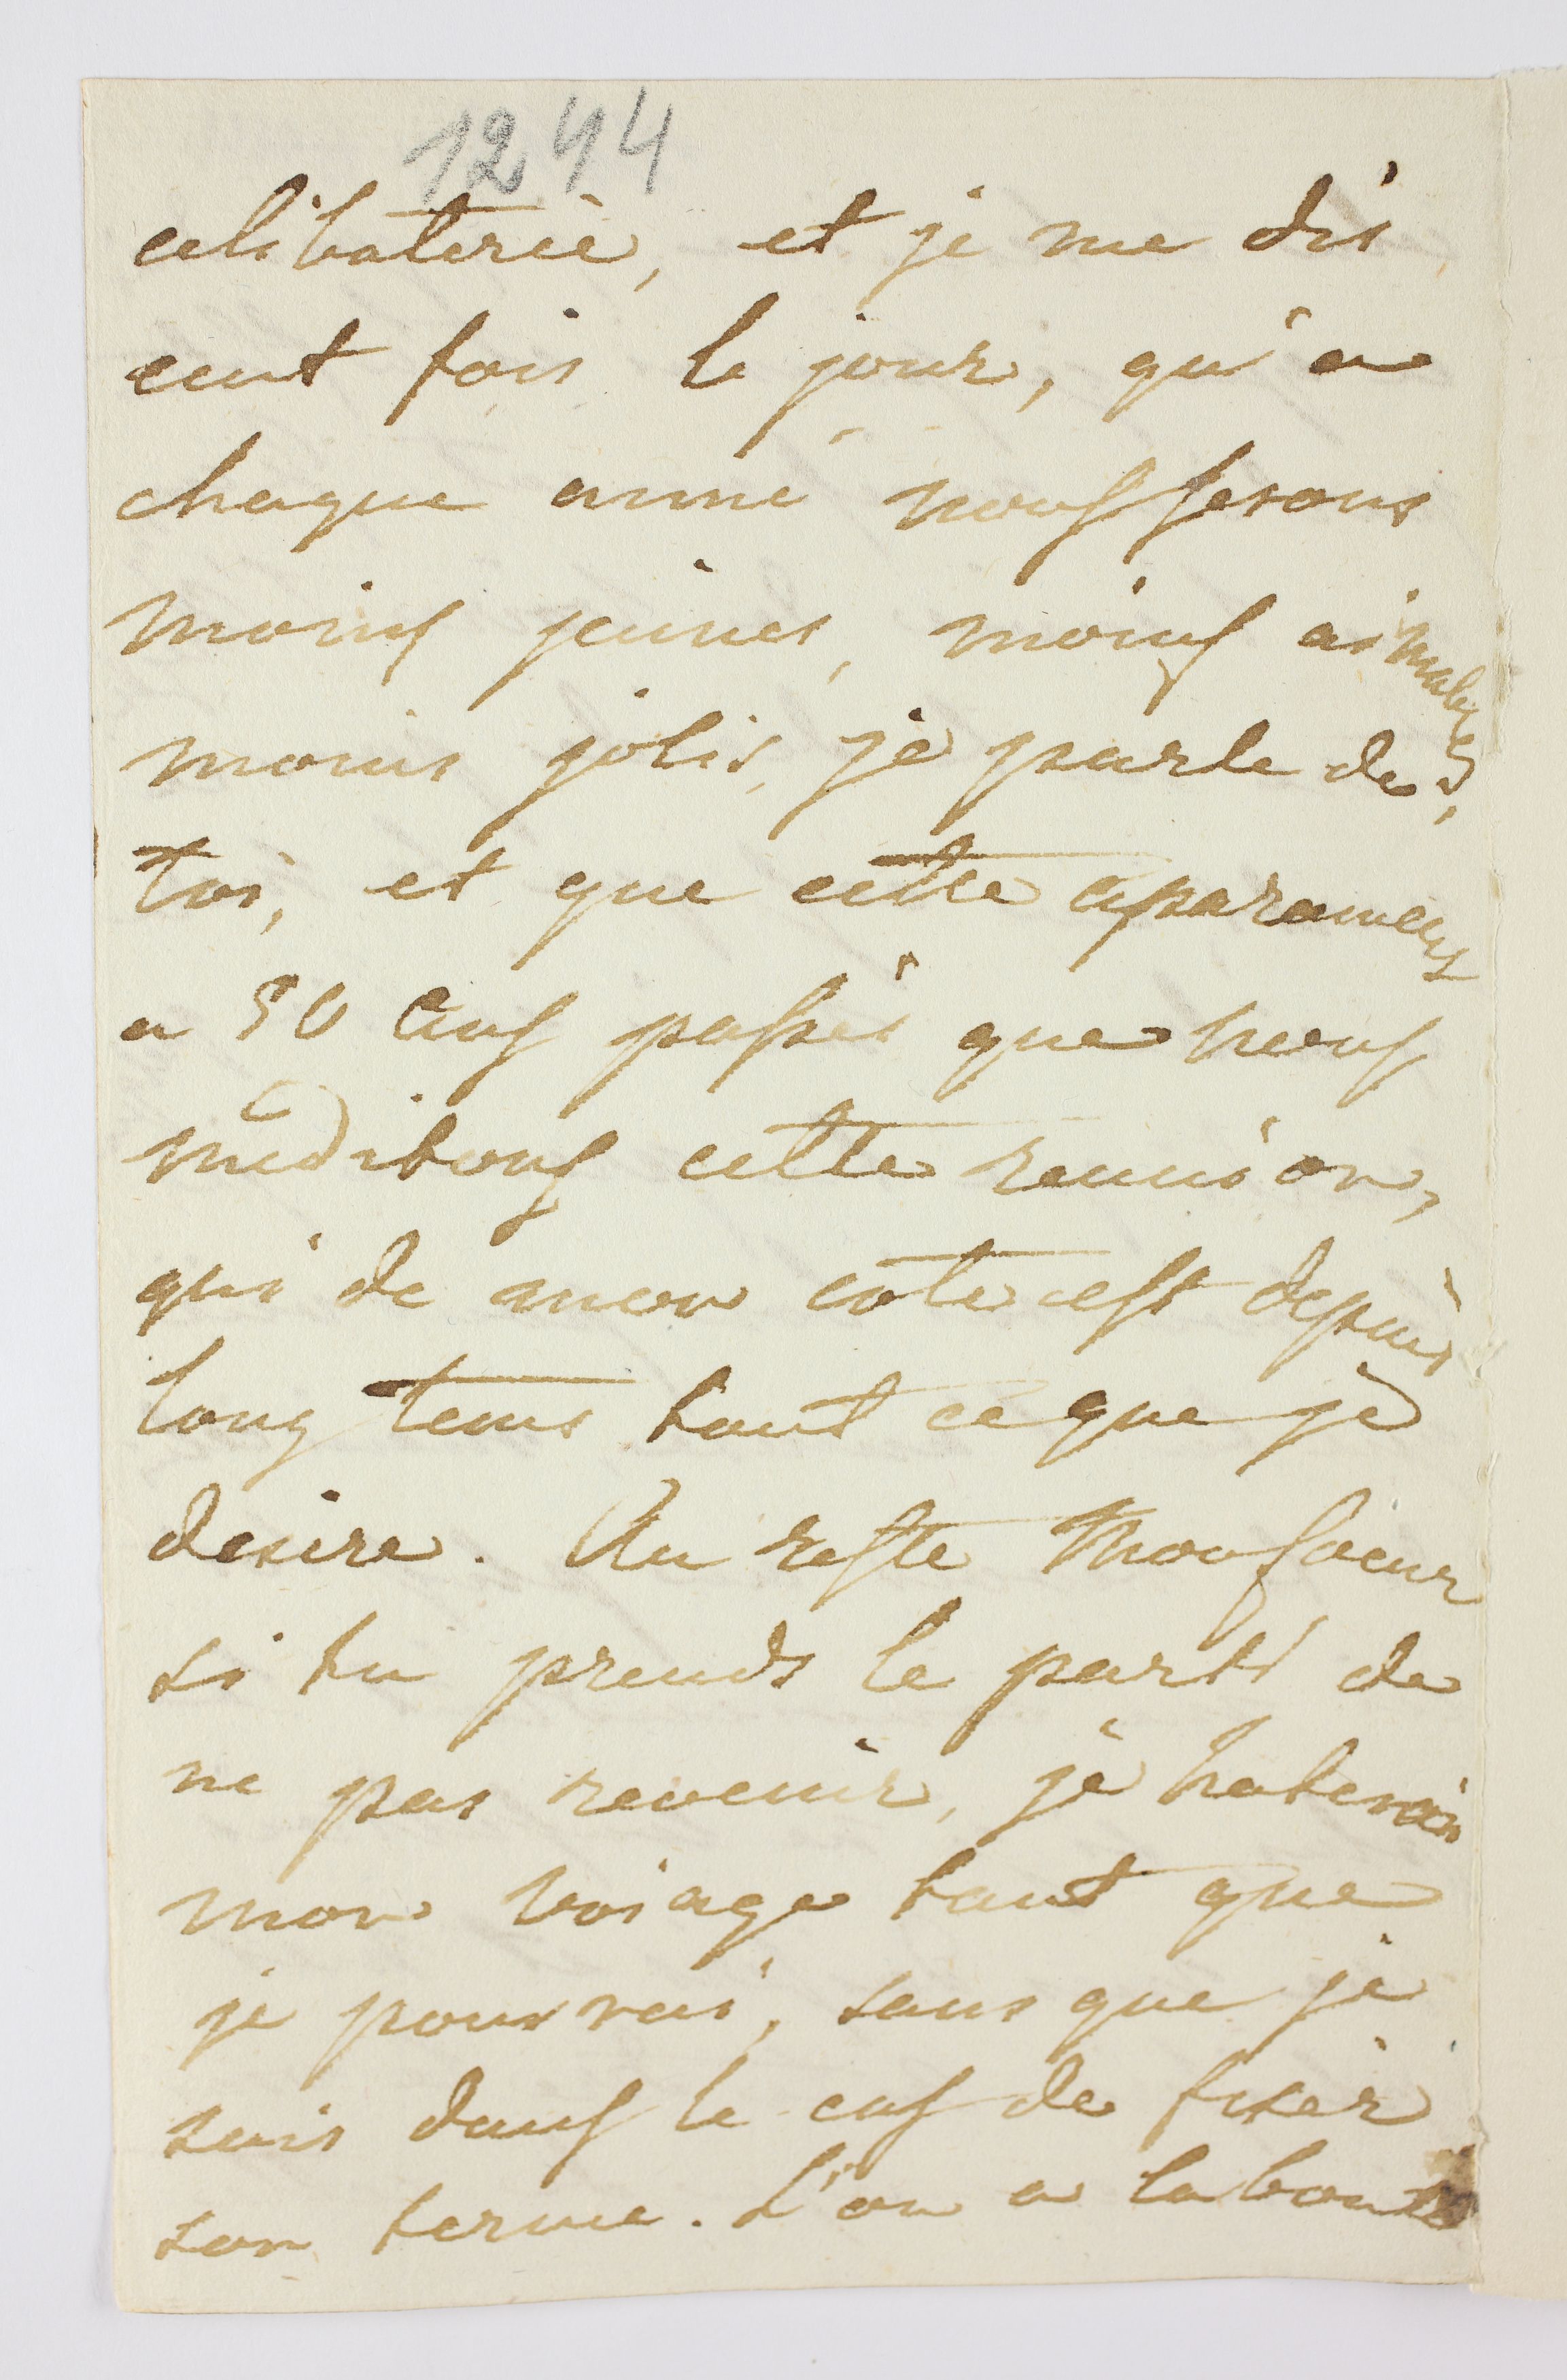 1244
celibaterie, et je me dis
cent fois le jour, qu'a
chaque anné nous serons
moins jeunes, moins aimables,
moins jolis, je parle de
toi, et que cette aparamens
a 50 ans passés que nous
meditons cette reunion,
qui de mon cote est depuis
long tems tout ce que je
desire. Au reste Mon coeur
si tu prends le parti de
ne pas revenir, je haterais
mon voiage tant que
je pourrai, sans que je
sois dans le cas de fixer
son terme. L'on a la bonté